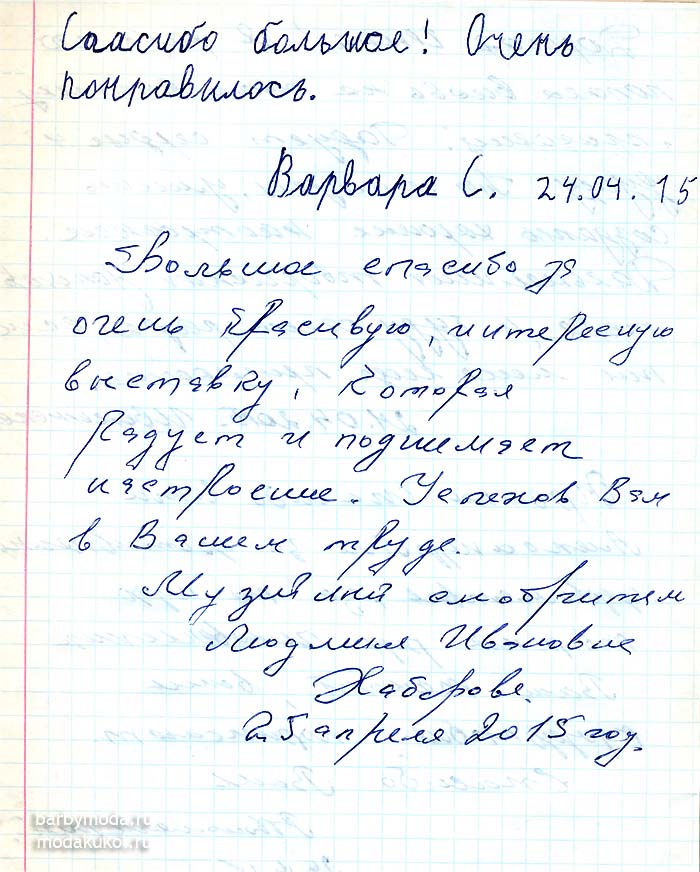 Спасибо большое! Очень
понравилось.
Варвара С. 24.04.15
Большое спасибо за
очень красивую, интересную
выставку, которая
радует и поднимает
настроение. Успехов Вам
в Вашем труде.
Музейный смотритель
Людмила Ивановна
Хаберова.
25 апреля 2015 год.
barbymoda.ru
modakukol.ru